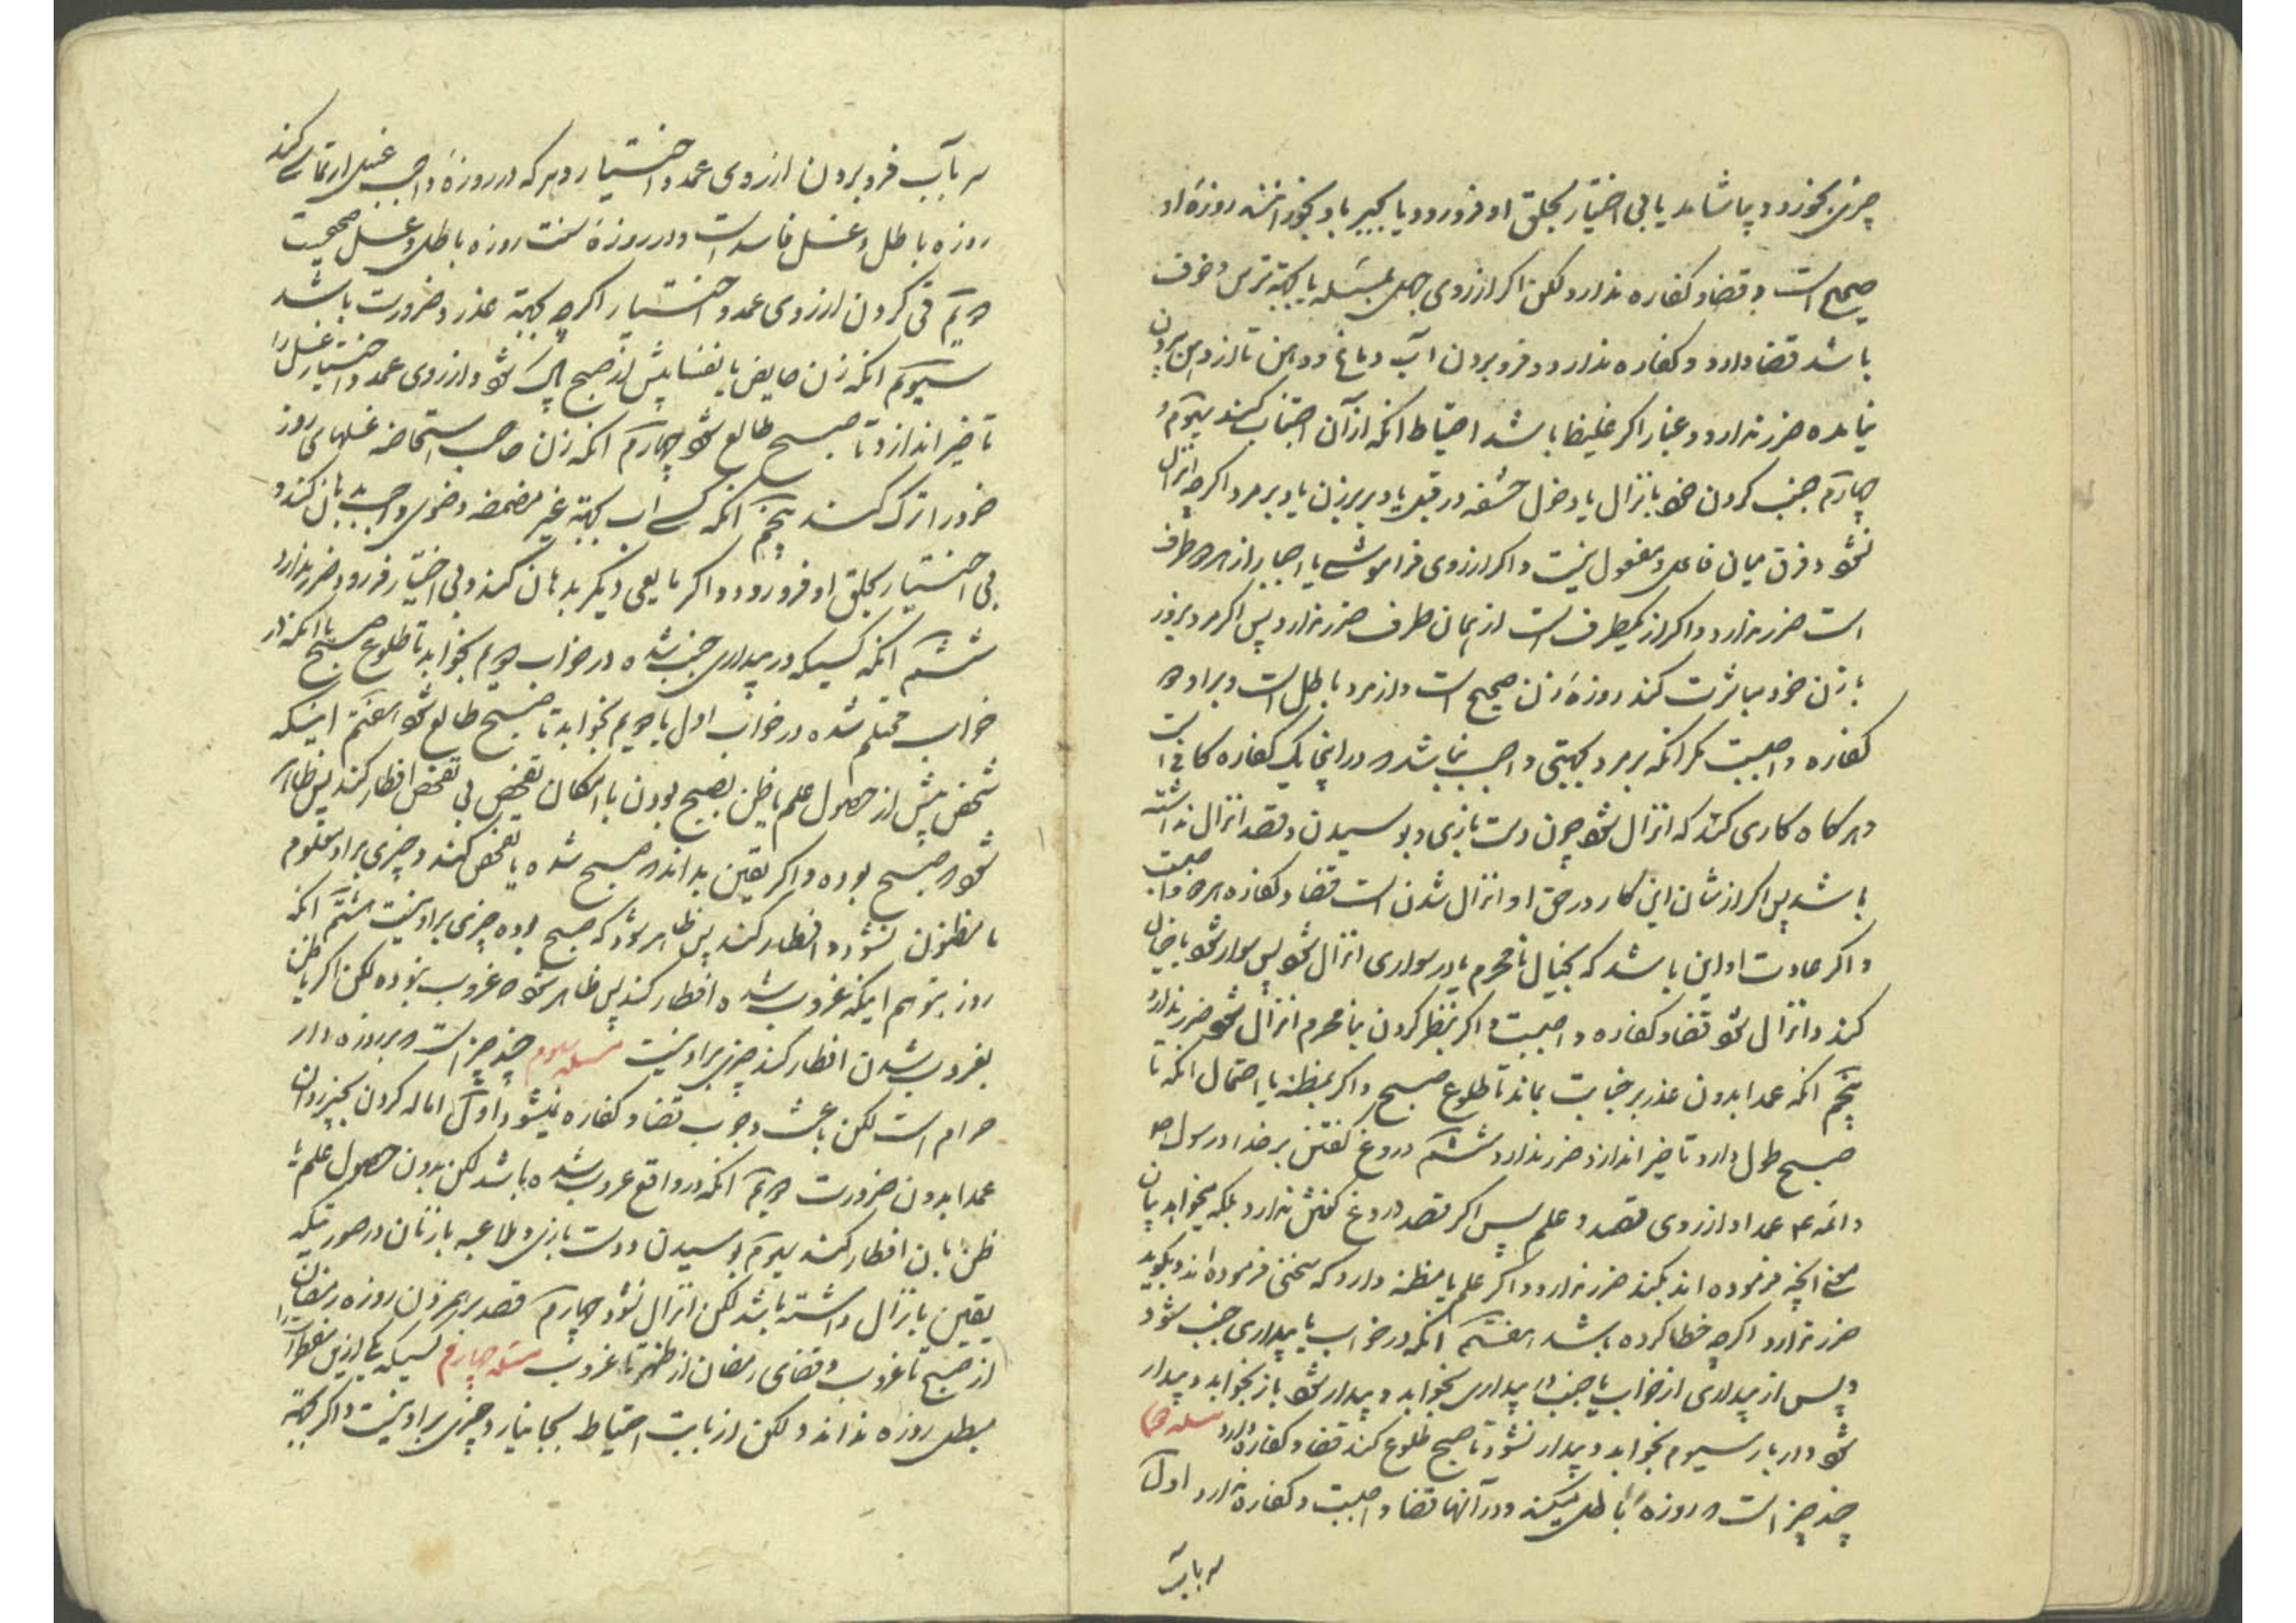 چیزی بخورد و بیاشامد یا بی اختیار بحلق او فرو رود یا بجبر باو بخورانند روزهٔ او
صحیح است و قضا و کفاره ندارد ولکن اکر از روی جهل بمسئله یا بجهة ترس و خوف
باشد قضا دارد و کفاره ندارد و فرو بردن آب دماغ و دهن تا از دهن بیرون
نیامده ضرر ندارد و غبار اکر غلیظ باشد احتیاط انکه از آن اجتناب کنند سیوم و
چهارم جنب کردن خود بانزال یا دخول حشفه در قبل یا دبر زن یا دبر مرد اکرچه انزال
نشود و فرق میان فاعل و مفعول نیست و اکر از روی فراموشی یا اجبار از هر دو طرف
است ضرر ندارد و اکر از یکطرف است از همان طرف ضرر ندارد پس اکر مرد بزور
با زن خود مباشرت کند روزهٔ زن صحیح است و از مرد باطل است و بر او دو
کفاره واجبست مکر انکه بر مرد بجهتی واجب نباشد که در اینجا یک کفاره کافی است
و هر کاه کاری کند که انزال شود چون دست بازی و بوسیدن و قصد انزال نداشته
باشد پس اکر از شان این کار در حق او انزال شدن است قضا و کفاره هر دو واجبست
و اکر عادت او این باشد که بخیال نامحرم یا در سواری انزال شود پس سوار شود یا خیال
کند و انزال شود قضا و کفاره واجبست و اکر بنظر کردن بنامحرم انزال شود ضرر ندارد
پنجم انکه عمدا بدون عذر بر جنابت بماند تا طلوع صبح و اکر بمظنه یا احتمال انکه تا
صبح طول دارد تاخیر اندازد ضرر ندارد ششم دروغ کفتن بر خدا و رسول ص
و ائمه ع عمدا و از روی قصد و علم پس اکر قصد دروغ کفتن ندارد بلکه میخواهد بیان
معنی انچه فرموده اند بکند ضرر ندارد و اکر علم یا مظنه دارد که سخنی فرموده اند و بکوید
ضرر ندارد اکرچه خطا کرده باشد هفتم انکه در خواب یا بیداری جنب شود
و پس از بیداری از خواب یا جنب در بیداری بخوابد و بیدار شود باز بخوابد و بیدار
شود و در بار سیوم بخوابد و بیدار نشود تا صبح طلوع کند قضا و کفاره دارد مسئله دوم
چند چیز است که روزه را باطل میکند و در آنها قضا واجبست و کفاره ندارد اول
سر بآب
سر بآب فرو بردن از روی عمد و اختیار و هر که در روزهٔ واجب غسل ارتماسی کند
روزه باطل و غسل فاسد است و در روزهٔ سنت روزه باطل و غسل صحیحست
دویم قی کردن از روی عمد و اختیار اکرچه بجهة عذر و ضرورت باشد
سیوم انکه زن حایض یا نفسا پیش از صبح پاک شود و از روی عمد و اختیار غسل را
تاخیر اندازد تا صبح طالع شود چهارم انکه زن صاحب استحاضه غسلهای روز
خود را ترک کند پنجم انکه کسی آب بجهة غیر مضمضه وضوی واجب بدهان کند و
بی اختیار بحلق او فرو رود و اکر مایعی دیکر بدهان کند و بی اختیار فرو رود ضرر ندارد
ششم انکه کسیکه در بیداری جنب شده در خواب دویم بخوابد تا طلوع صبح یا انکه در
خواب محتلم شده در خواب اول یا دویم بخوابد تا صبح طالع شود هفتم اینکه
شخص پیش از حصول علم یا ظن بصبح بودن با امکان تفحص بی تفحص افطار کند پس ظاهر
شود که صبح بوده و اکر یقین بداند که صبح شده یا تفحص کند و چیزی بر او معلوم
یا مظنون نشود و افطار کند پس ظاهر شود که صبح بوده چیزی بر او نیست هشتم انکه
روز بتوهم اینکه غروب شده افطار کند پس ظاهر شود که غروب نبوده لکن اکر با ظن
بغروب شدن افطار کند چیزی بر او نیست مسئله سیوم چند چیز است که بر روزه دار
حرام است لکن باعث وجوب قضا و کفاره نمیشود اول اماله کردن بچیز روان
عمدا بدون ضرورت دویم انکه در واقع غروب شده باشد لکن بدون حصول علم یا
ظن بان افطار کند سیوم بوسیدن و دست بازی و ملاعبه با زنان در صورتیکه
یقین بانزال داشته باشد لکن انزال نشود چهارم قصد بر هم زدن روزه رمضان
از صبح تا غروب و قضای رمضان از ظهر تا غروب مسئله چهارم کسیکه یکی ازین مفطرات را
مبطل روزه نداند ولکن از بابت احتیاط بجا نیارد چیزی بر او نیست و اکر بجهة